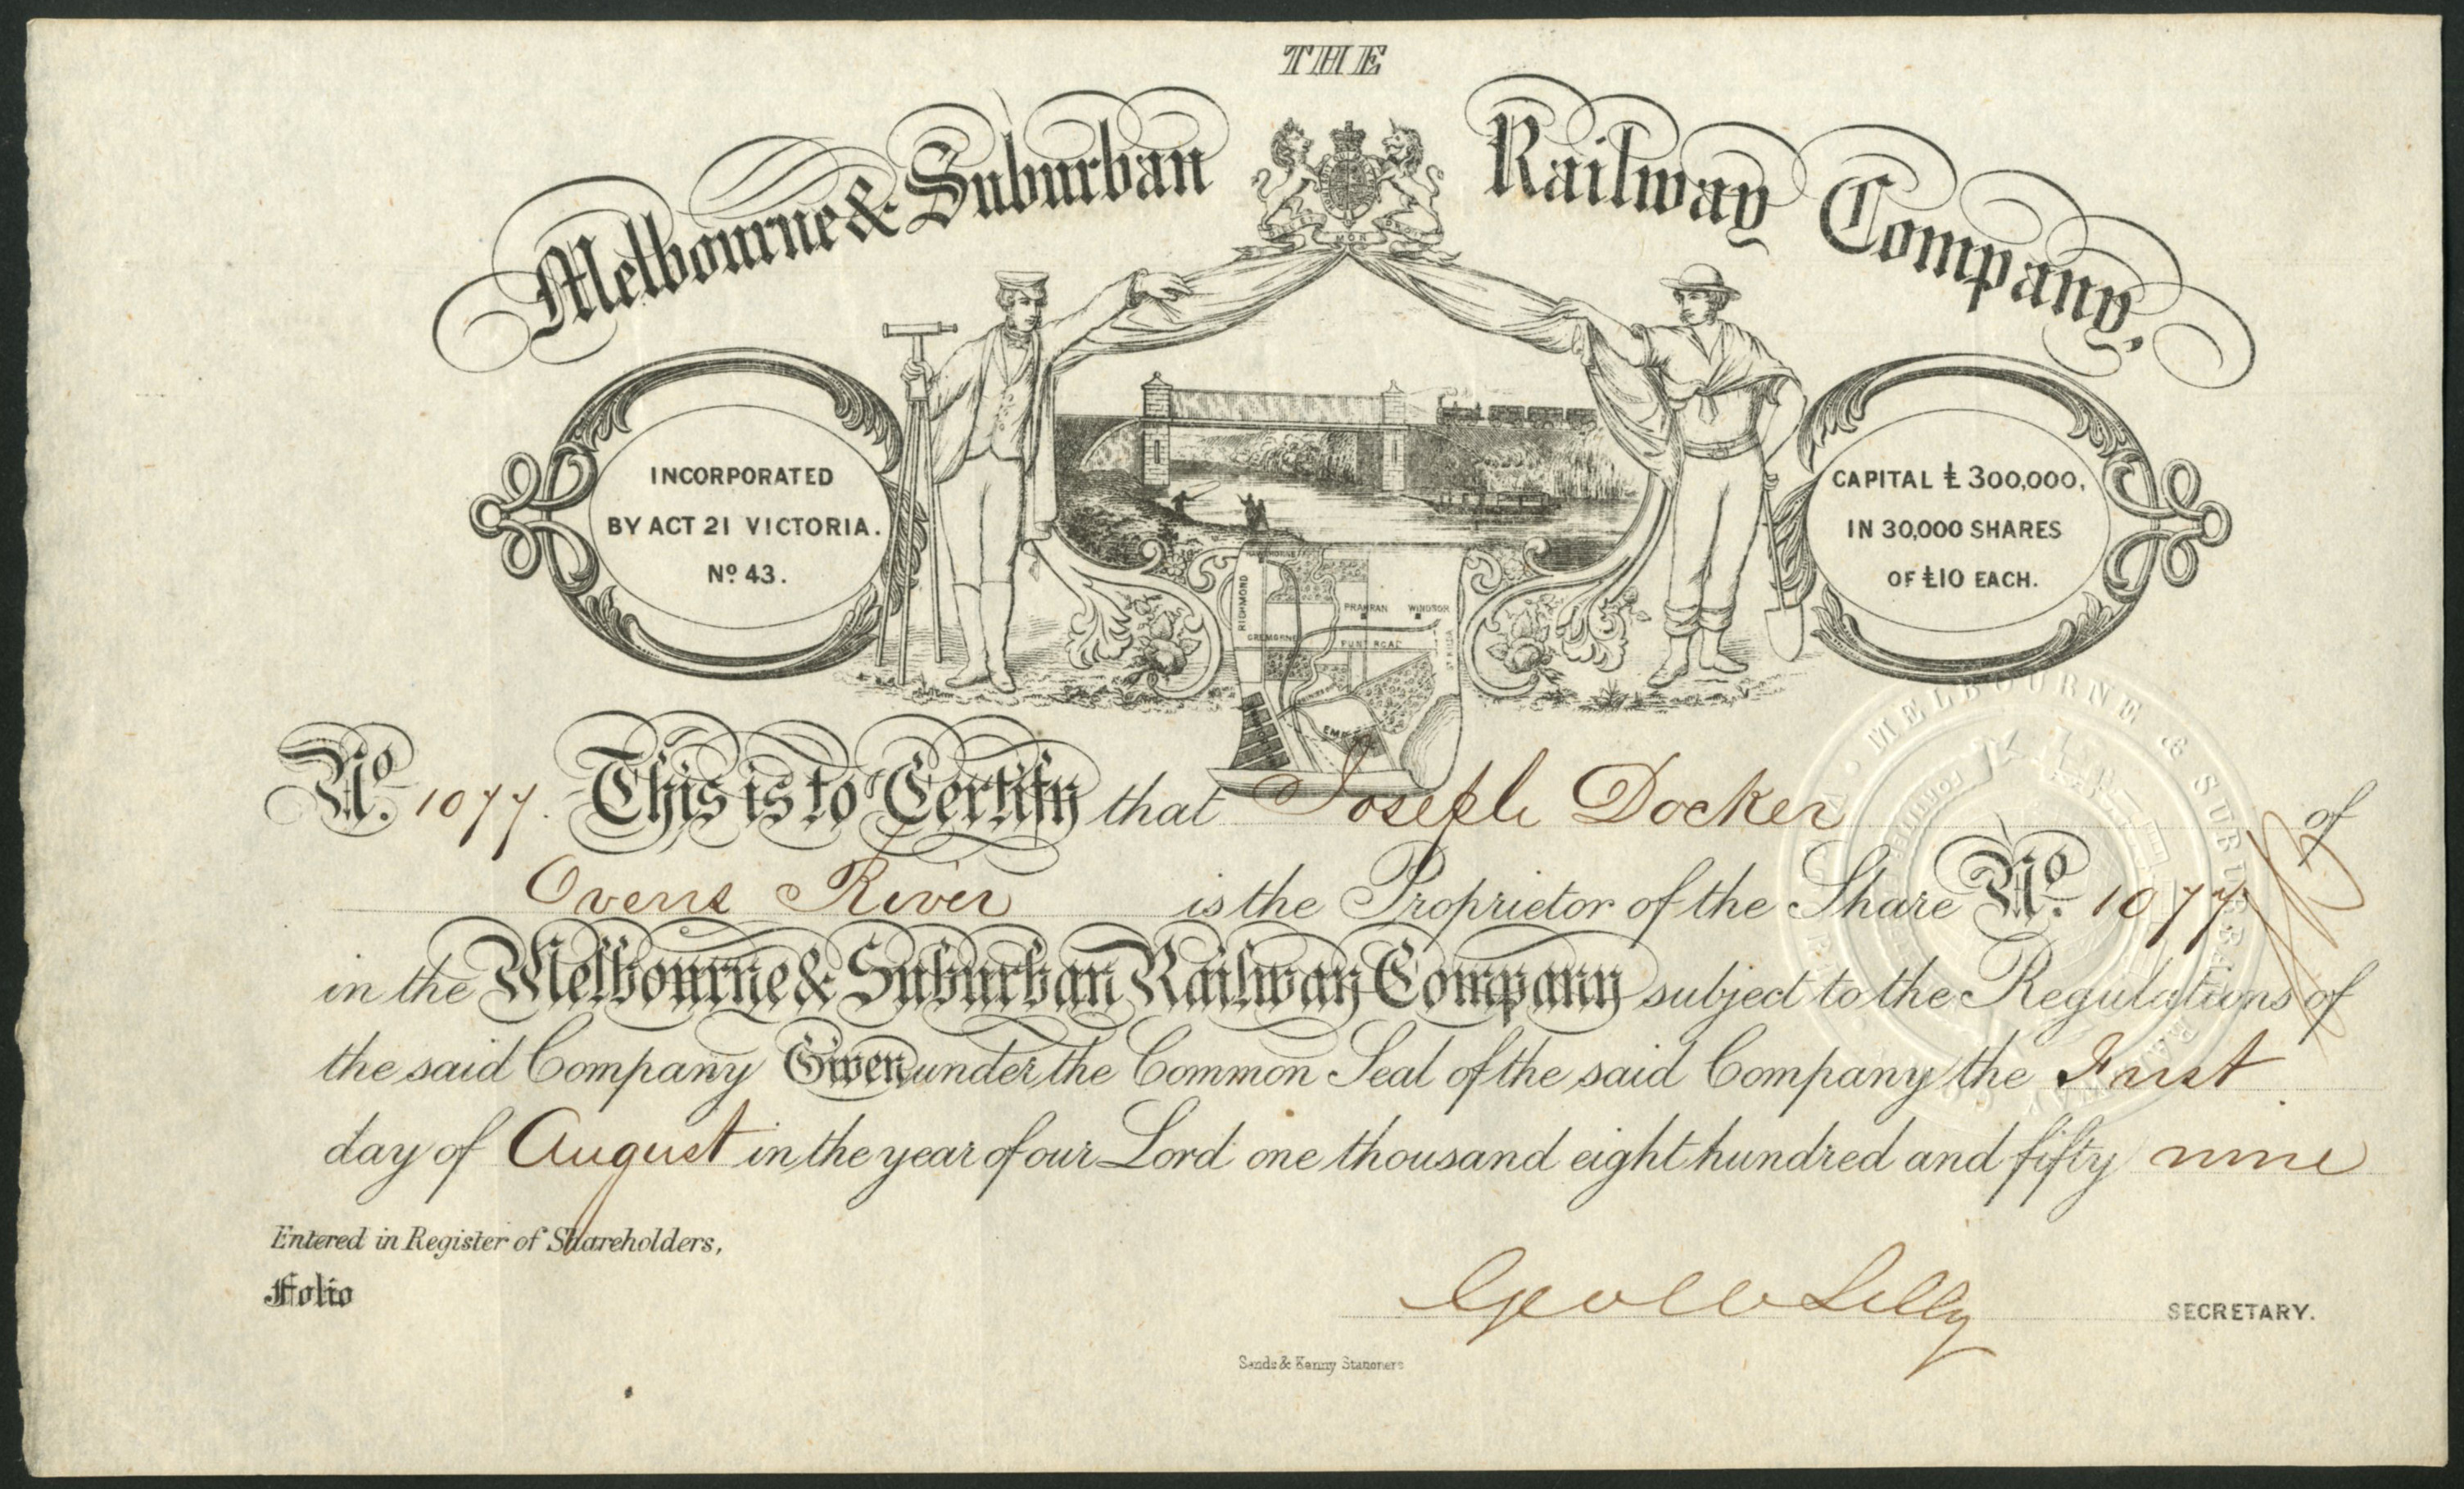 THE
Melbourne & Suburban Railway Company,
INCORPORATED
BY ACT 21 VICTORIA.
Nº 43.
CAPITAL £300,000,
IN 30,000 SHARES
OF £10 EACH.
RICHMOND
PRAHRAN WINDSOR
CREMORNE
PUNT ROAD
Nº. 1077. This is to Certify that Joseph Docker of
Ovens River is the Proprietor of the Share Nº. 1077
in the Melbourne & Suburban Railway Company subject to the Regulations of
the said Company Given under the Common Seal of the said Company the First
day of August in the year of our Lord one thousand eight hundred and fifty nine
Entered in Register of Shareholders,
Folio
Lilly SECRETARY.
Sands & Kenny Stationers
MELBOURNE & SUBURBAN